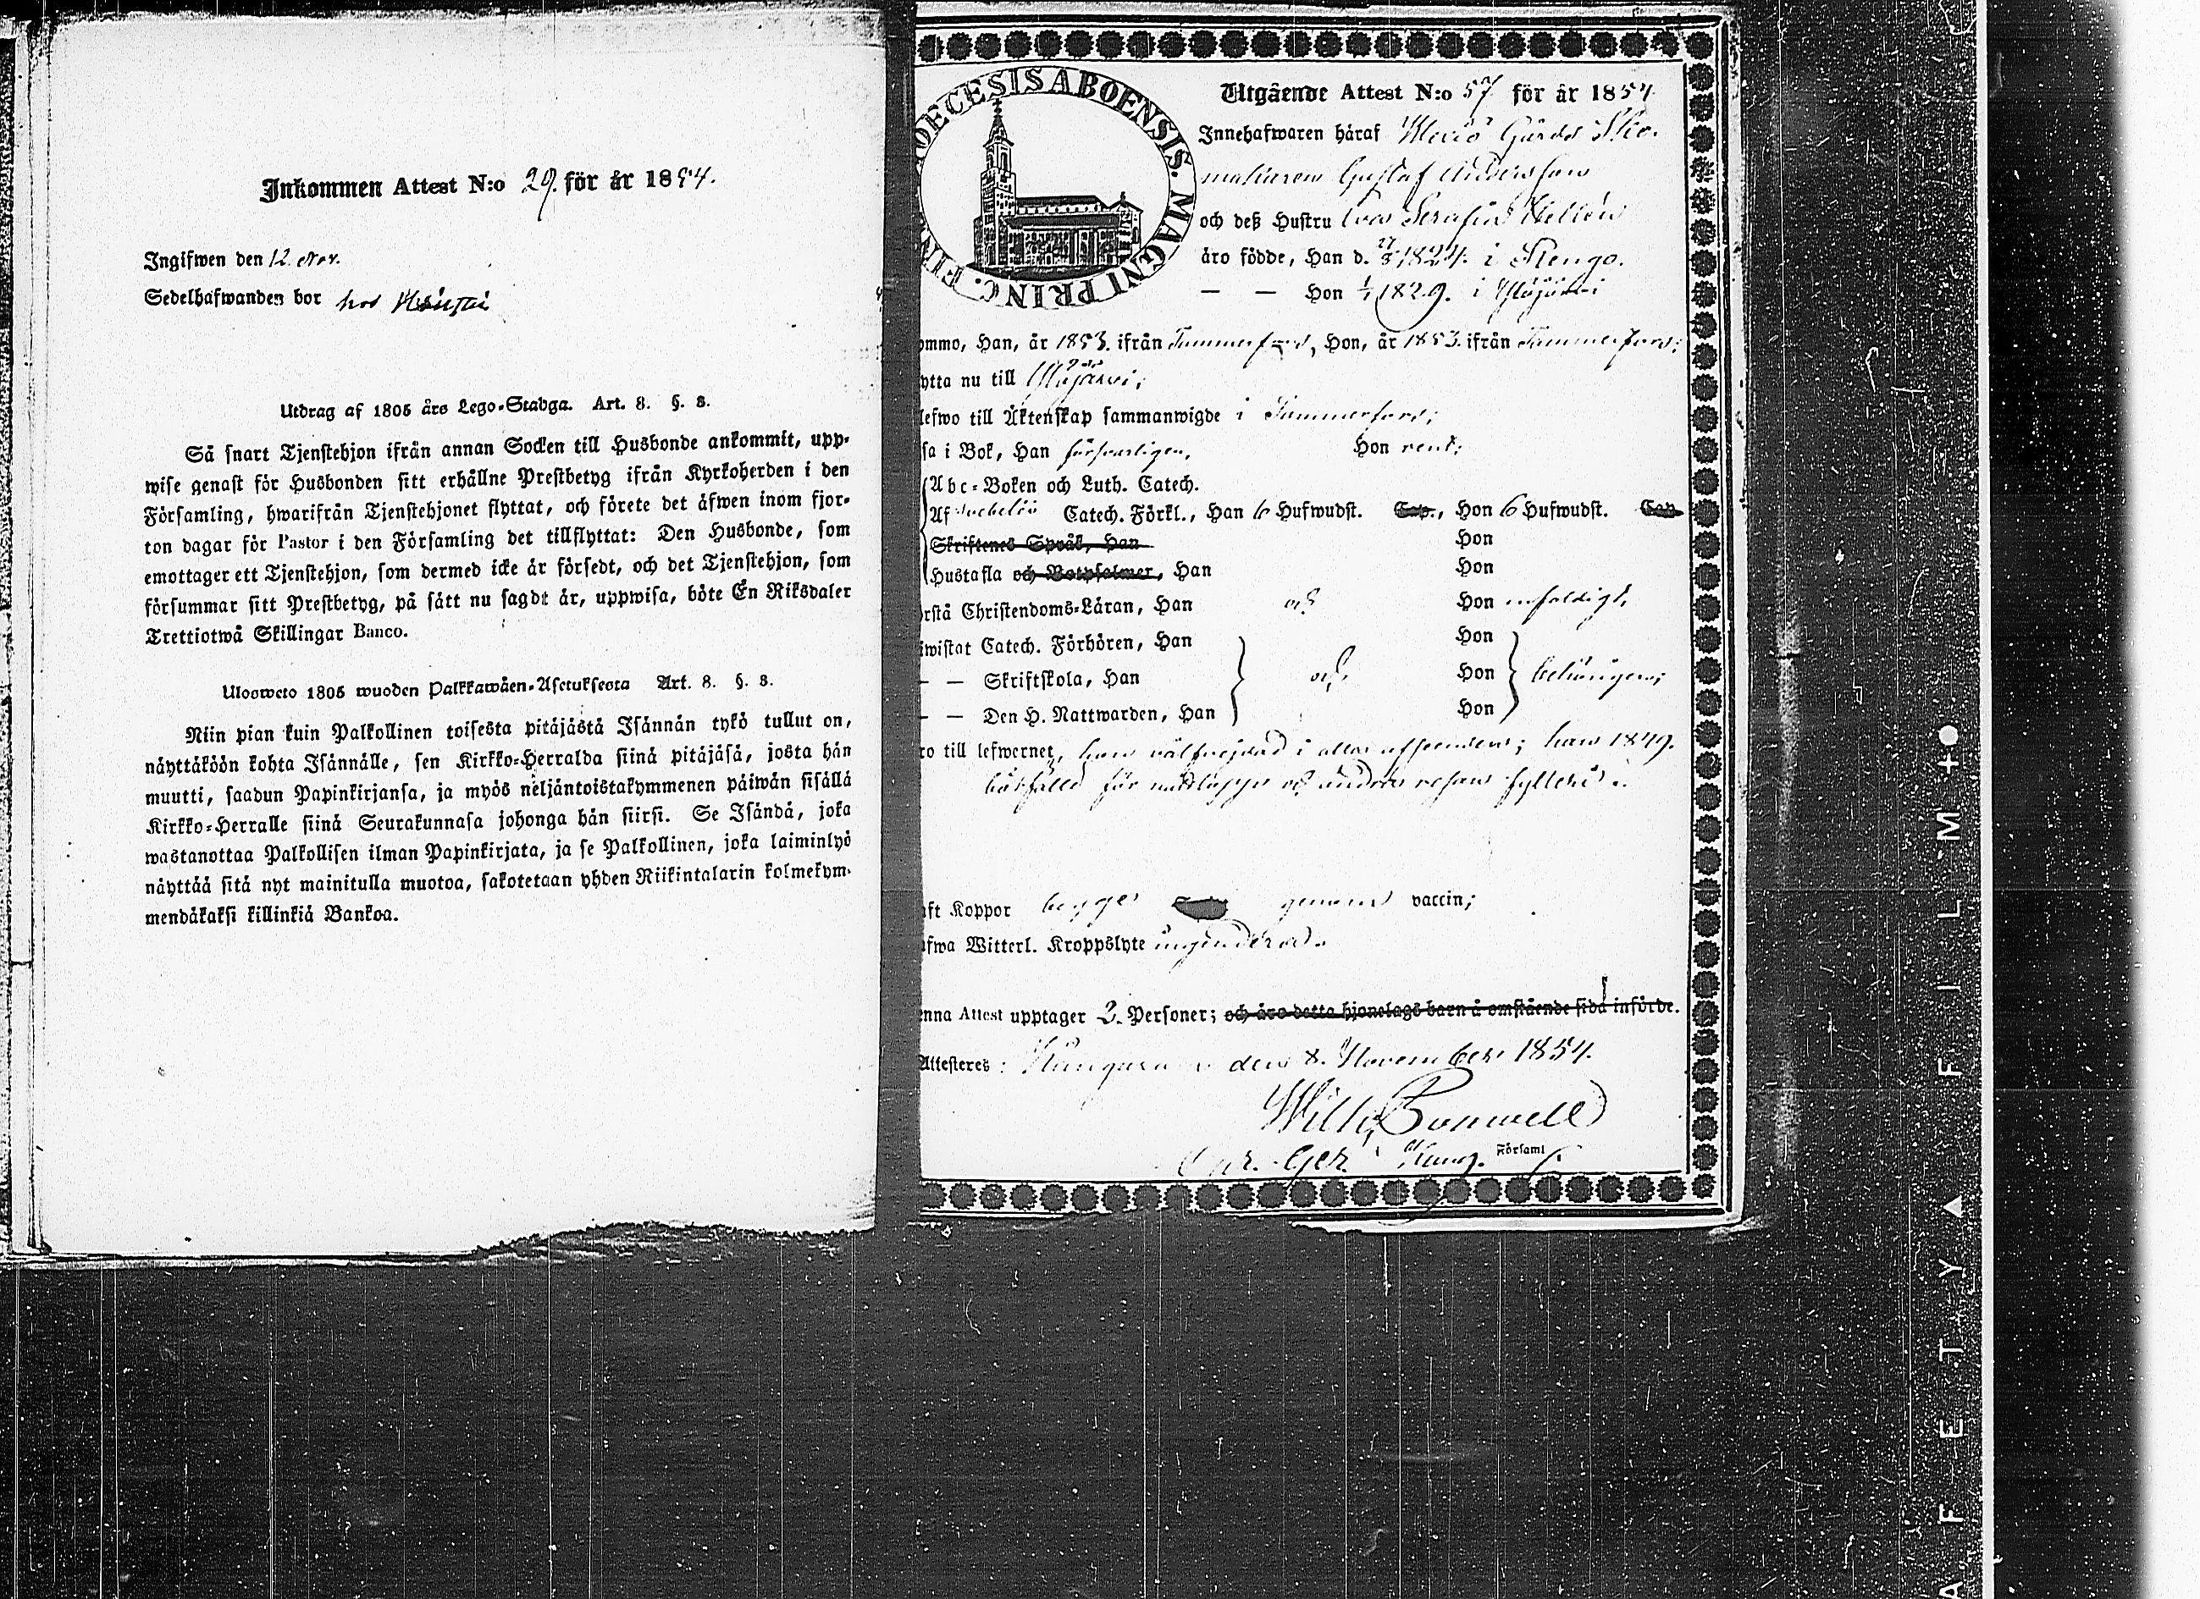 Inkommen Attest N:o 29. för år 1854.
Ingifwen den 12. Nov.
Sedelhafwanden bor hos
Utdrag af 1805 års Lego-Stadga. Art. 8. §. 8.
Så snart Tjenstehjon ifrån annan Socken till Husbonde ankommit, upp-
wise genast för Husbonden sitt erhållne Prestbetyg ifrån Kyrkoherden i den
Församling, hwarifrån Tjenstehjonet flyttat, och förete det äfwen inom fjor-
ton dagar för Pastor i den Församling det tillflyttat: Den Husbonde, som
emottager ett Tjenstehjon, som dermed icke är försedt, och det Tjenstehjon, som
försummar sitt Prestbetyg, på sätt nu sagdt är, uppwisa, böte En Riksdaler
Trettiotwå Skillingar Banco.
Ulosweto 1805 wuoden Palkkawäen-Asetuksesta Art. 8. §. 8.
Niin pian kuin Palkollinen toisesta pitäjästä Isännän tykö tullut on,
näyttäköön kohta Isännälle, sen Kirkko-Herralda siinä pitäjäsä, josta hän
muutti, saadun Papinkirjansa, ja myös neljäntoistakymmenen päiwän sisällä
Kirkko-Herralle siinä Seurakunnasa johonga hän siirsi. Se Isändä, joka
wastanottaa Palkollisen ilman Papinkirjata, ja se Palkollinen, joka laiminlyö
näyttää sitä nyt mainitulla muotoa, sakotetaan yhden Riikintalarin kolmekym-
mendäkaksi killinkiä Bankoa.
DIOECESIS ABOENSIS. MAGNI PRINC. FIN
Utgående Attest N:o 57 för år 1854
Innehafwaren häraf Gårds Sko.
makaren Gustaf Andersson
och deß Hustru Eva Serafia Hellén
äro födde, Han d. 27/8 1824. i Kengo.
— — Hon 1/1 1829. i Ylöjärvi
ommo, Han, år 1853. ifrån Tammerfors, Hon, år 1853. ifrån Tammerfors;
ytta nu till Ylöjärvi;
lefwo till Äktenskap sammanwigde i Tammerfors;
sa i Bok, Han försvarligen, Hon rent;
Abc-Boken och Luth. Catech.
Af Catech. Förkl., Han 6 Hufwudst. Cap., Hon 6 Hufwudst. Cap
Skriftenes Språk, Han Hon
Hustafla och Botpsalmer, Han Hon
rstå Christendoms-Läran, Han och Hon enfaldigt,
iwistat Catech. Förhören, Han Hon
— — Skriftskola, Han och Hon behörigen;
— — Den H. Nattwarden, Han Hon
ro till lefwernet, han välfrejdad i allas afseenden; han 1849.
bötfälld för och andra resan fylleri.
aft Koppor begge genom vaccin;
afwa Witterl. Kroppslyte ingendera.
enna Attest upptager 2. Personer; och äro detta hjonelags barn å omstående sida införde.
Attesteres: Kangasala den 8. November 1854.
Wilh. Bonwell
Församl
SAFETY ▲ FILM +●